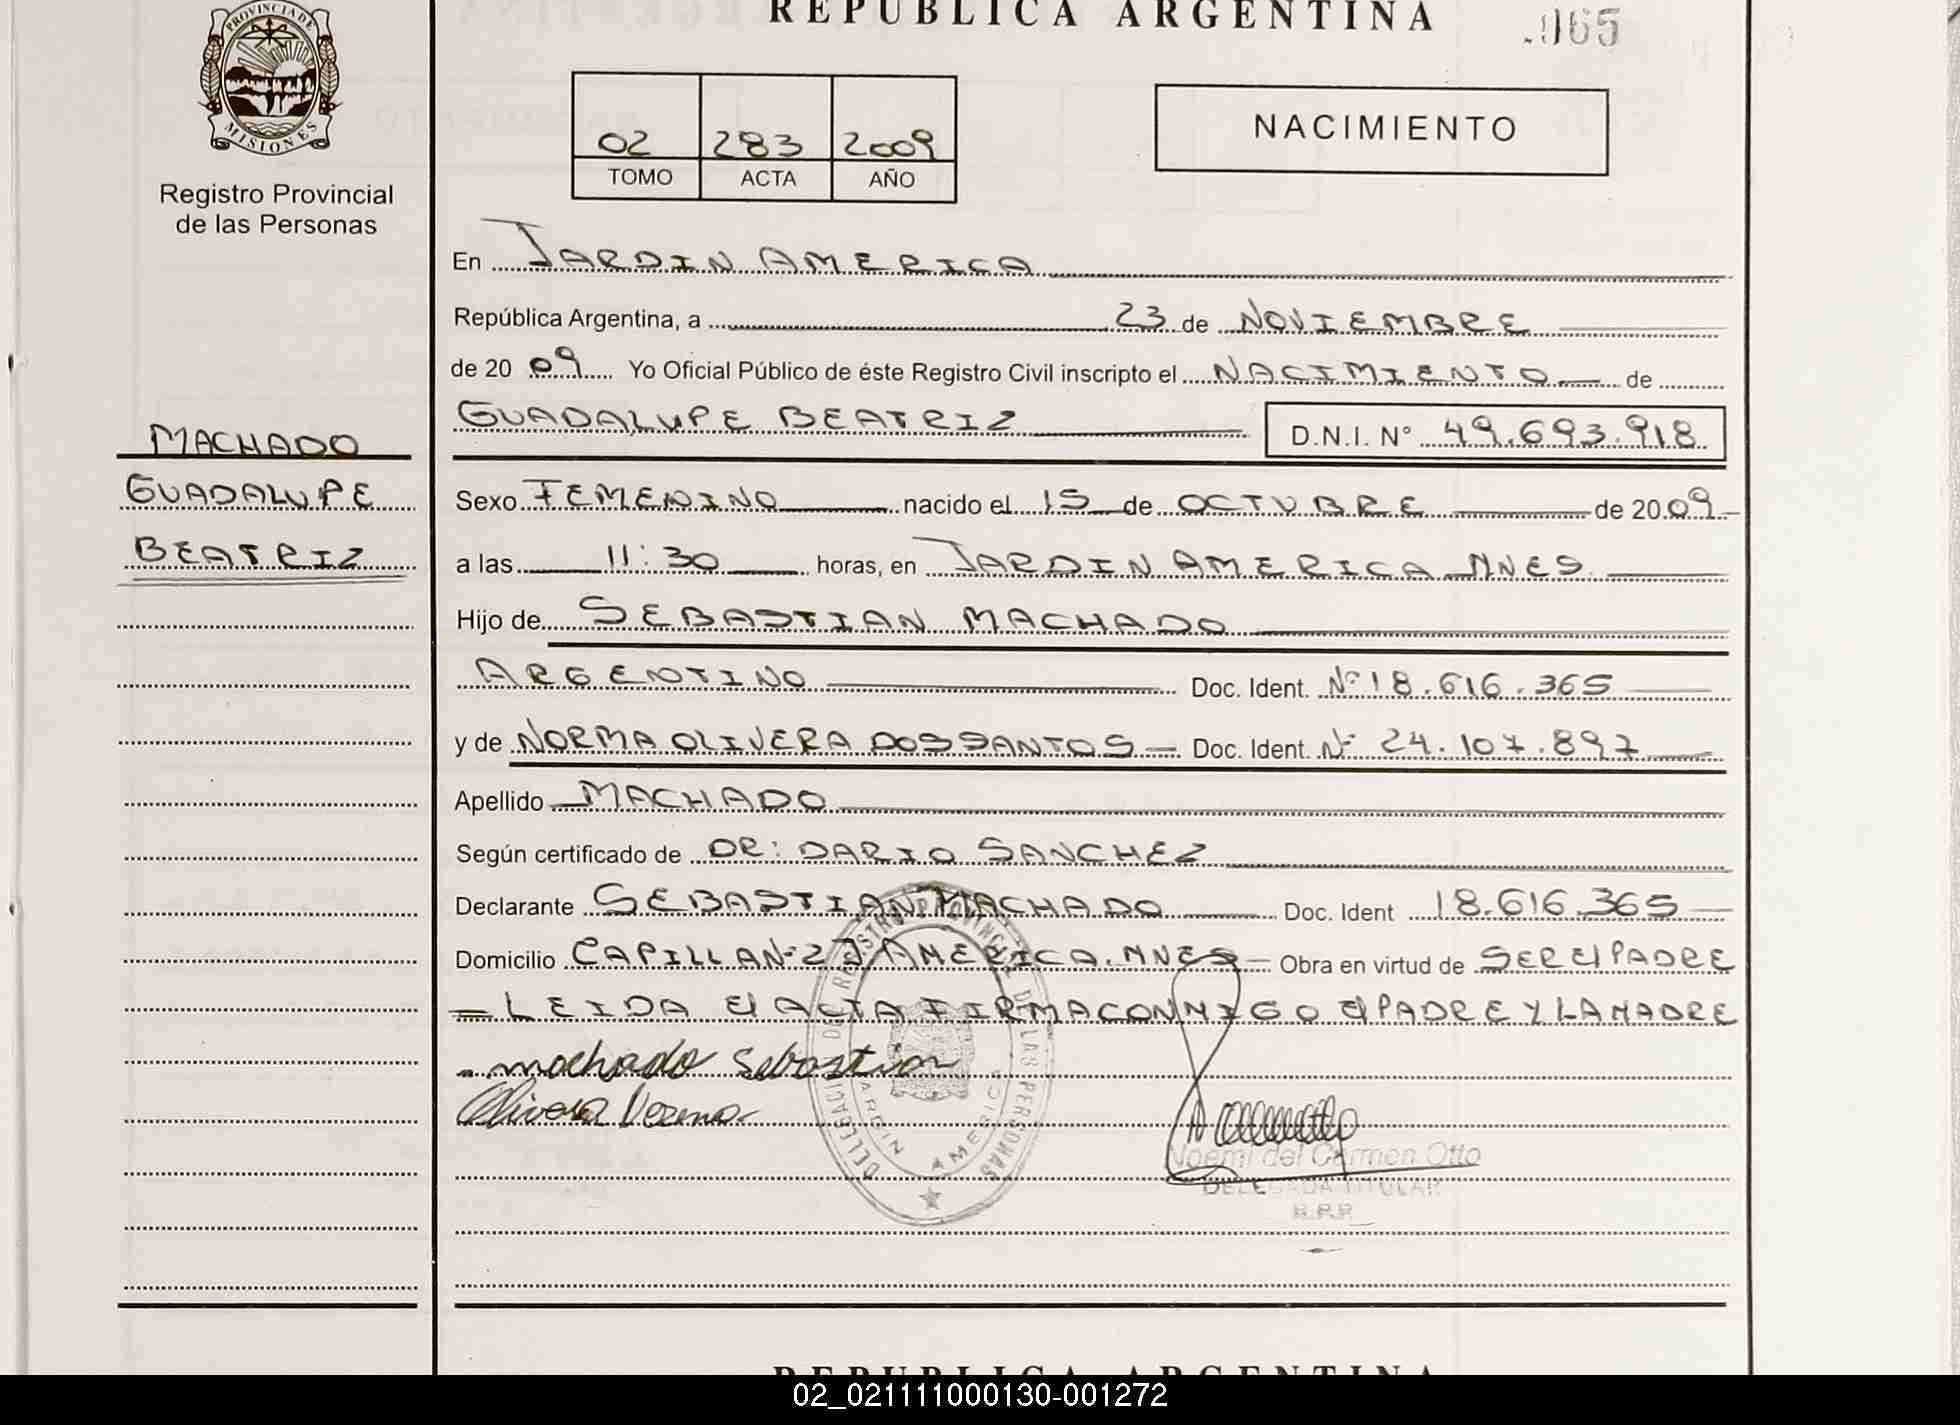 REPUBLICA ARGENTINA
.065
PROVINCIA DE
MISIONES
Registro Provincial
de las Personas
02 283 2009
TOMO ACTA AÑO
NACIMIENTO
En JARDIN AMERICA
República Argentina, a 23 de NOVIEMBRE
de 20 09 Yo Oficial Público de éste Registro Civil inscripto el NACIMIENTO de
GUADALUPE BEATRIZ D.N.I. N° 49.693.918
MACHADO
GUADALUPE
BEATRIZ
Sexo FEMENINO nacido el 15 de OCTUBRE de 20 09
a las 11:30 horas, en JARDIN AMERICA MNES
Hijo de SEBASTIAN MACHADO
ARGENTINO Doc. Ident. N° 18.616.365
y de NORMA OLIVERA DOS SANTOS Doc. Ident. N° 24.107.897
Apellido MACHADO
Según certificado de DR: DARIO SANCHEZ
Declarante SEBASTIAN MACHADO Doc. Ident 18.616.365
Domicilio CAPILLA N° 2 J. AMERICA. MNES Obra en virtud de SER El PADRE
= LEIDA El ACTA FIRMA CONMIGO El PADRE Y LA MADRE
machado Sebastian
Olivera Norma
DELEGACION DE REGISTRO PROVINCIAL DE LAS PERSONAS
JARDIN AMERICA
Noemi del Carmen Otto
DELEGADA TITULAR
R.P.P.
REPUBLICA ARGENTINA
02_021111000130-001272